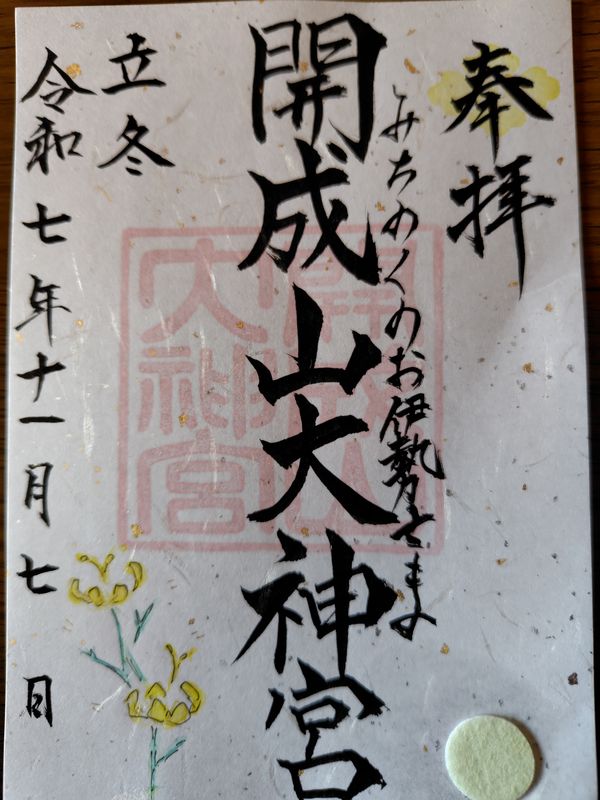 奉拝
みちのくのお伊勢さま
開成山大神宮
開成山
大神宮
立冬
令和七年十一月七日